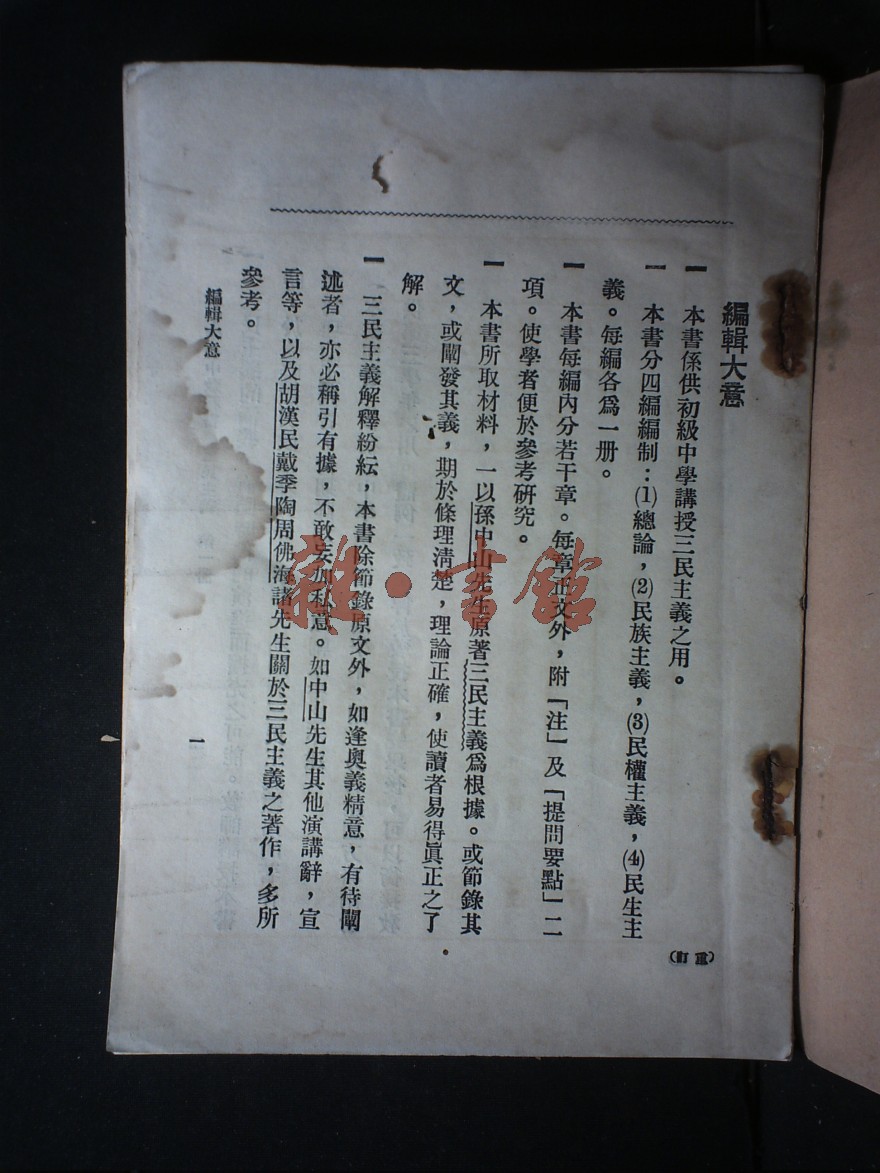 編輯大意
一 本書係供初級中學講授三民主義之用。
一 本書分四編編制：(1)總論，(2)民族主義，(3)民權主義，(4)民生主
義。每編各爲一册。
一 本書每編內分若干章。每章正文外，附「注」及「提問要點」二
項。使學者便於參考研究。
一 本書所取材料，一以孫中山先生原著三民主義爲根據。或節錄其
文，或闡發其義，期於條理清楚，理論正確，使讀者易得眞正之了
解。
一 三民主義解釋紛紜，本書除節錄原文外，如逢奧義精意，有待闡
述者，亦必稱引有據，不敢妄加私意。如中山先生其他演講辭，宣
言等，以及胡漢民戴季陶周佛海諸先生關於三民主義之著作，多所
參考。
編輯大意
一
(重訂)
雜·書館